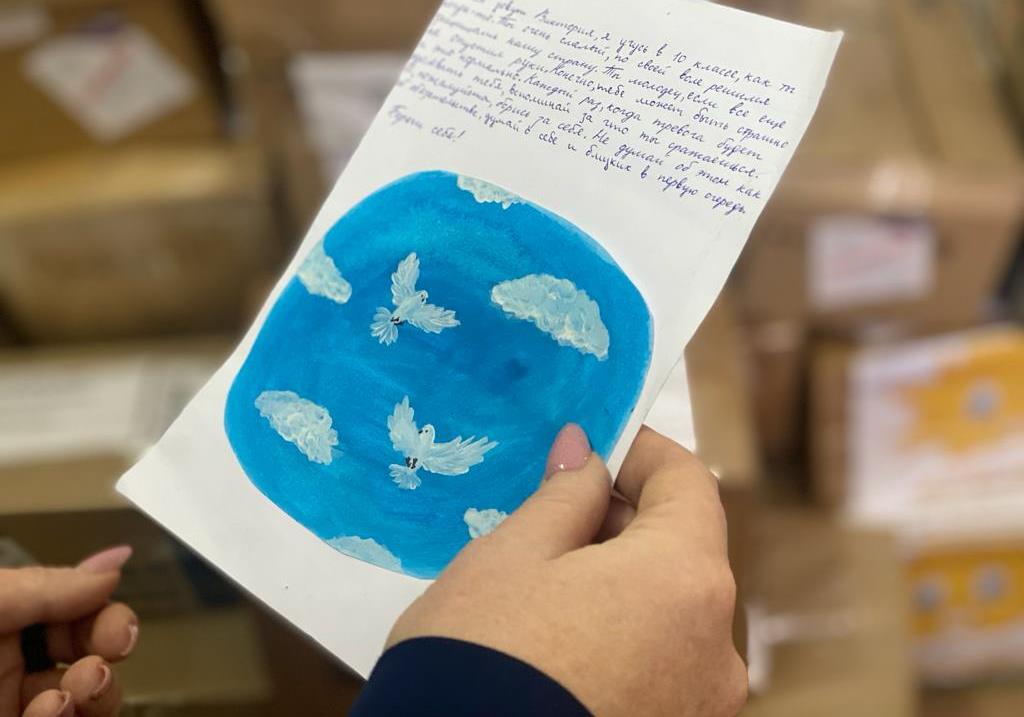 зовут Виктория, я учусь в 10 классе, как т
Ты очень смелый, по своей воле решился
нашу страну. Ты молодец, если все еще
не опустил руки. Конечно, тебе может быть страшно
это нормально. Каждый раз, когда тревога будет
тебя, вспоминай за что ты сражаешься.
пожалуйста, борись за себя. Не думай об этом как
обязательстве, думай о себе и близких в первую очередь.
Береги себя!